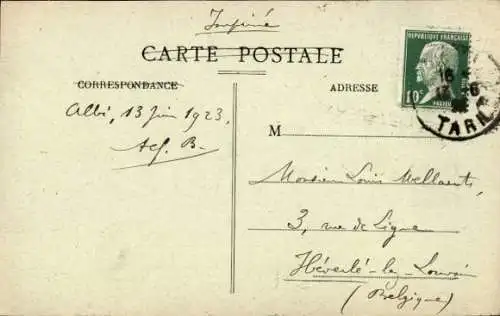 Imprimé
CARTE POSTALE
CORRESPONDANCE
ADRESSE
REPUBLIQUE FRANÇAISE
10c
PASTEUR
16
13 -6
TARN
Albi, 13 Juin 1923
M
Monsieur Louis Mellaerts,
3, rue de Ligne
Héverlé-lez-Louvain
(Belgique)